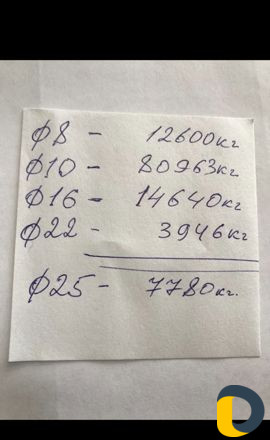 Ф8 - 12600кг
Ф10 - 80963кг
Ф16 - 14640кг
Ф22 - 3946кг
Ф25 - 7780кг.